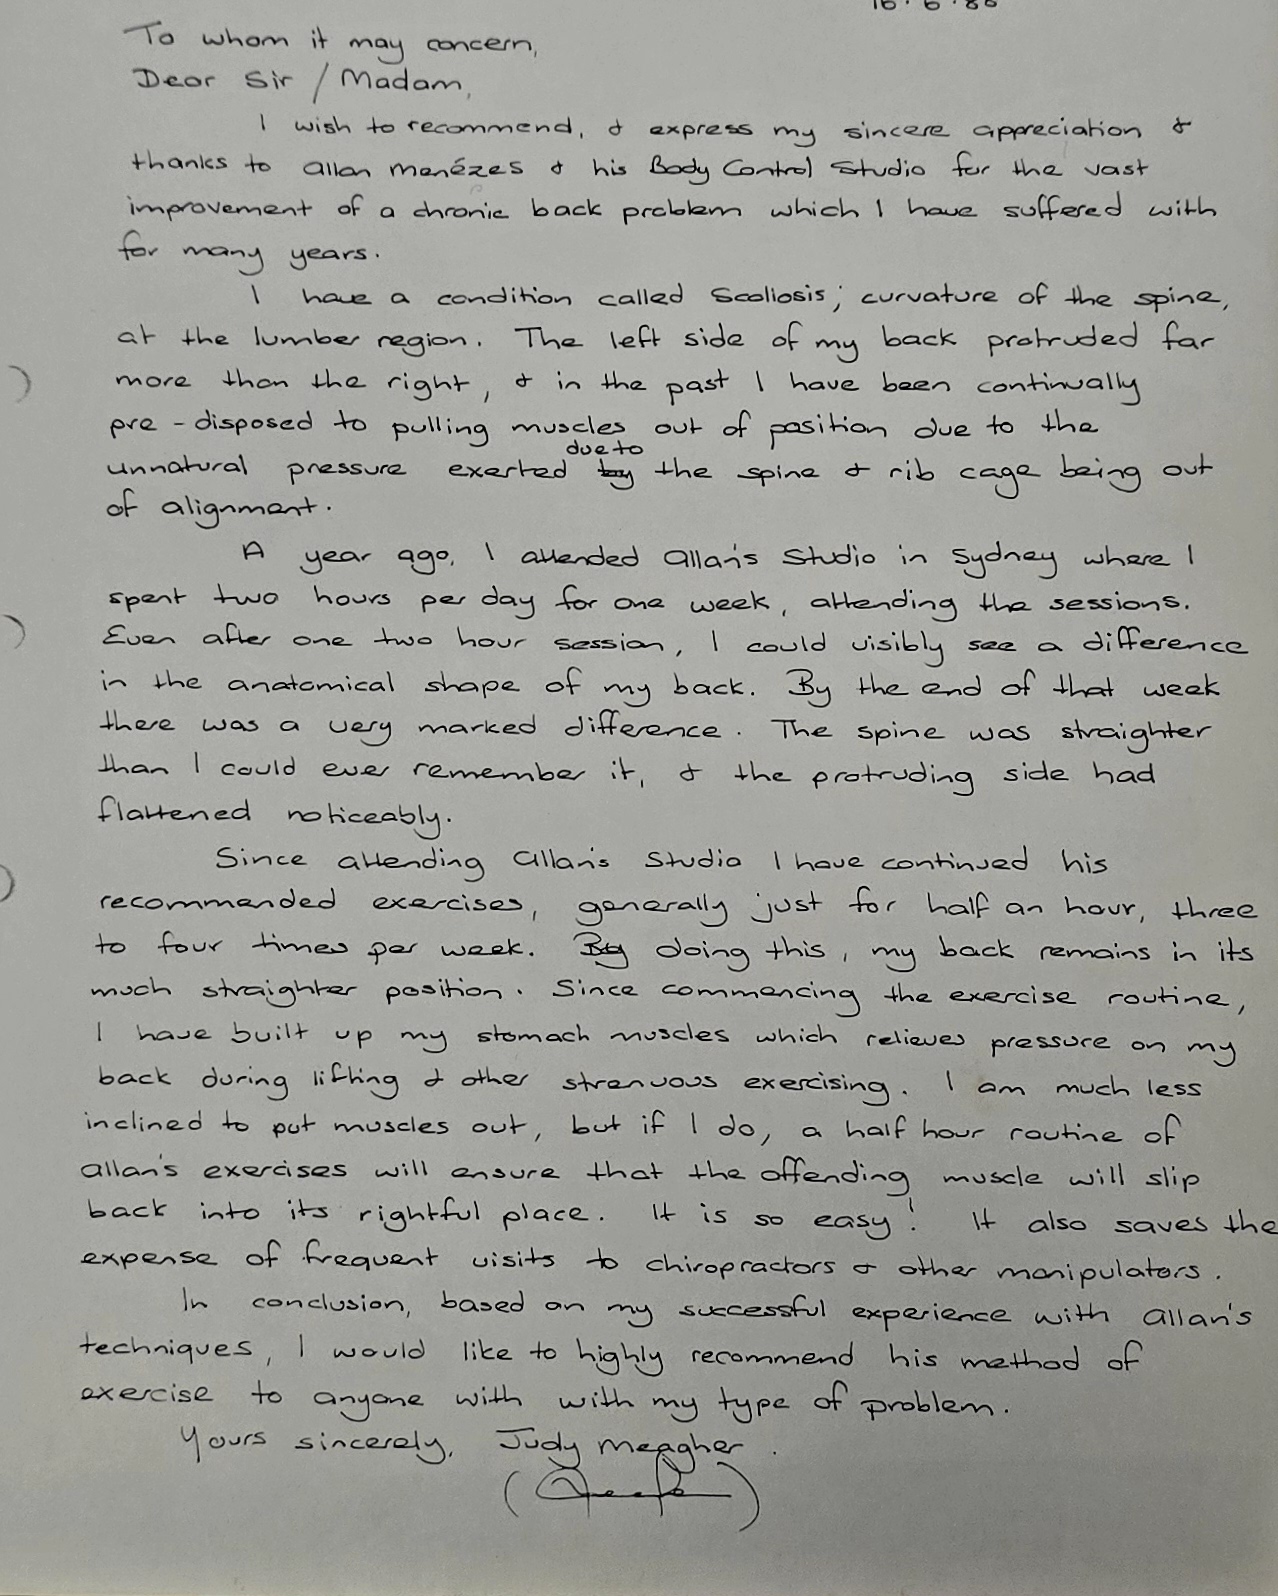 16.6.86
To whom it may concern,
Dear Sir / Madam,
I wish to recommend, & express my sincere appreciation &
thanks to Allan Menézes & his Body Control Studio for the vast
improvement of a chronic back problem which I have suffered with
for many years.
I have a condition called Scoliosis; curvature of the spine,
at the lumber region. The left side of my back protruded far
more than the right, & in the past I have been continually
pre-disposed to pulling muscles out of position due to the
due to
unnatural pressure exerted by the spine & rib cage being out
of alignment.
A year ago, I attended Allan's Studio in Sydney where I
spent two hours per day for one week, attending the sessions.
Even after one two hour session, I could visibly see a difference
in the anatomical shape of my back. By the end of that week
there was a very marked difference. The spine was straighter
than I could ever remember it, & the protruding side had
flattened noticeably.
Since attending Allan's Studio I have continued his
recommended exercises, generally just for half an hour, three
to four times per week. By doing this, my back remains in its
much straighter position. Since commencing the exercise routine,
I have built up my stomach muscles which relieves pressure on my
back during lifting & other strenuous exercising. I am much less
inclined to put muscles out, but if I do, a half hour routine of
Allan's exercises will ensure that the offending muscle will slip
back into its rightful place. It is so easy! It also saves the
expense of frequent visits to chiropractors & other manipulators.
In conclusion, based on my successful experience with Allan's
techniques, I would like to highly recommend his method of
exercise to anyone with with my type of problem.
Yours sincerely, Judy Meagher.